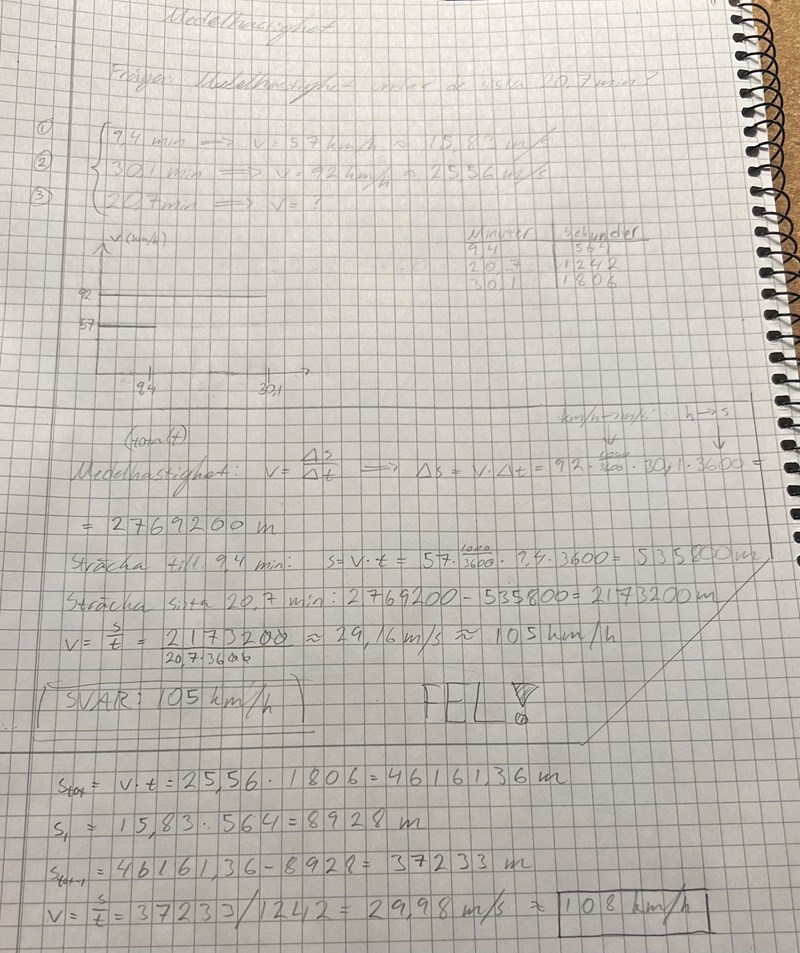 Medelhastighet
Fråga: Medelhastighet under de sista 20,7 min?
① 9,4 min ⟹ v = 57 km/h ≈ 15,83 m/s
② 30,1 min ⟹ v = 92 km/h ≈ 25,56 m/s
③ 20,7 min ⟹ v = ?
v (km/h)
Minuter Sekunder
9,4 564
20,7 1242
30,1 1806
92
57
9,4 30,1
km/h→m/s: h→s
(totalt)
Medelhastighet: v = Δs/Δt ⟹ Δs = v·Δt = 92·1000/3600·30,1·3600 =
= 2769200 m
Sträcka till 9,4 min: s = v·t = 57·1000/3600·9,4·3600 = 535800 m
Sträcka sista 20,7 min: 2769200 - 535800 = 2173200 m
v = s/t = 2173200/20,7·3600 ≈ 29,16 m/s ≈ 105 km/h
SVAR: 105 km/h FEL!
s tot = v·t = 25,56·1806 = 46161,36 m
s₁ = 15,83·564 = 8928 m
s tot-1 = 46161,36 - 8928 = 37233 m
v = s/t = 37233/1242 = 29,98 m/s ≈ 108 km/h